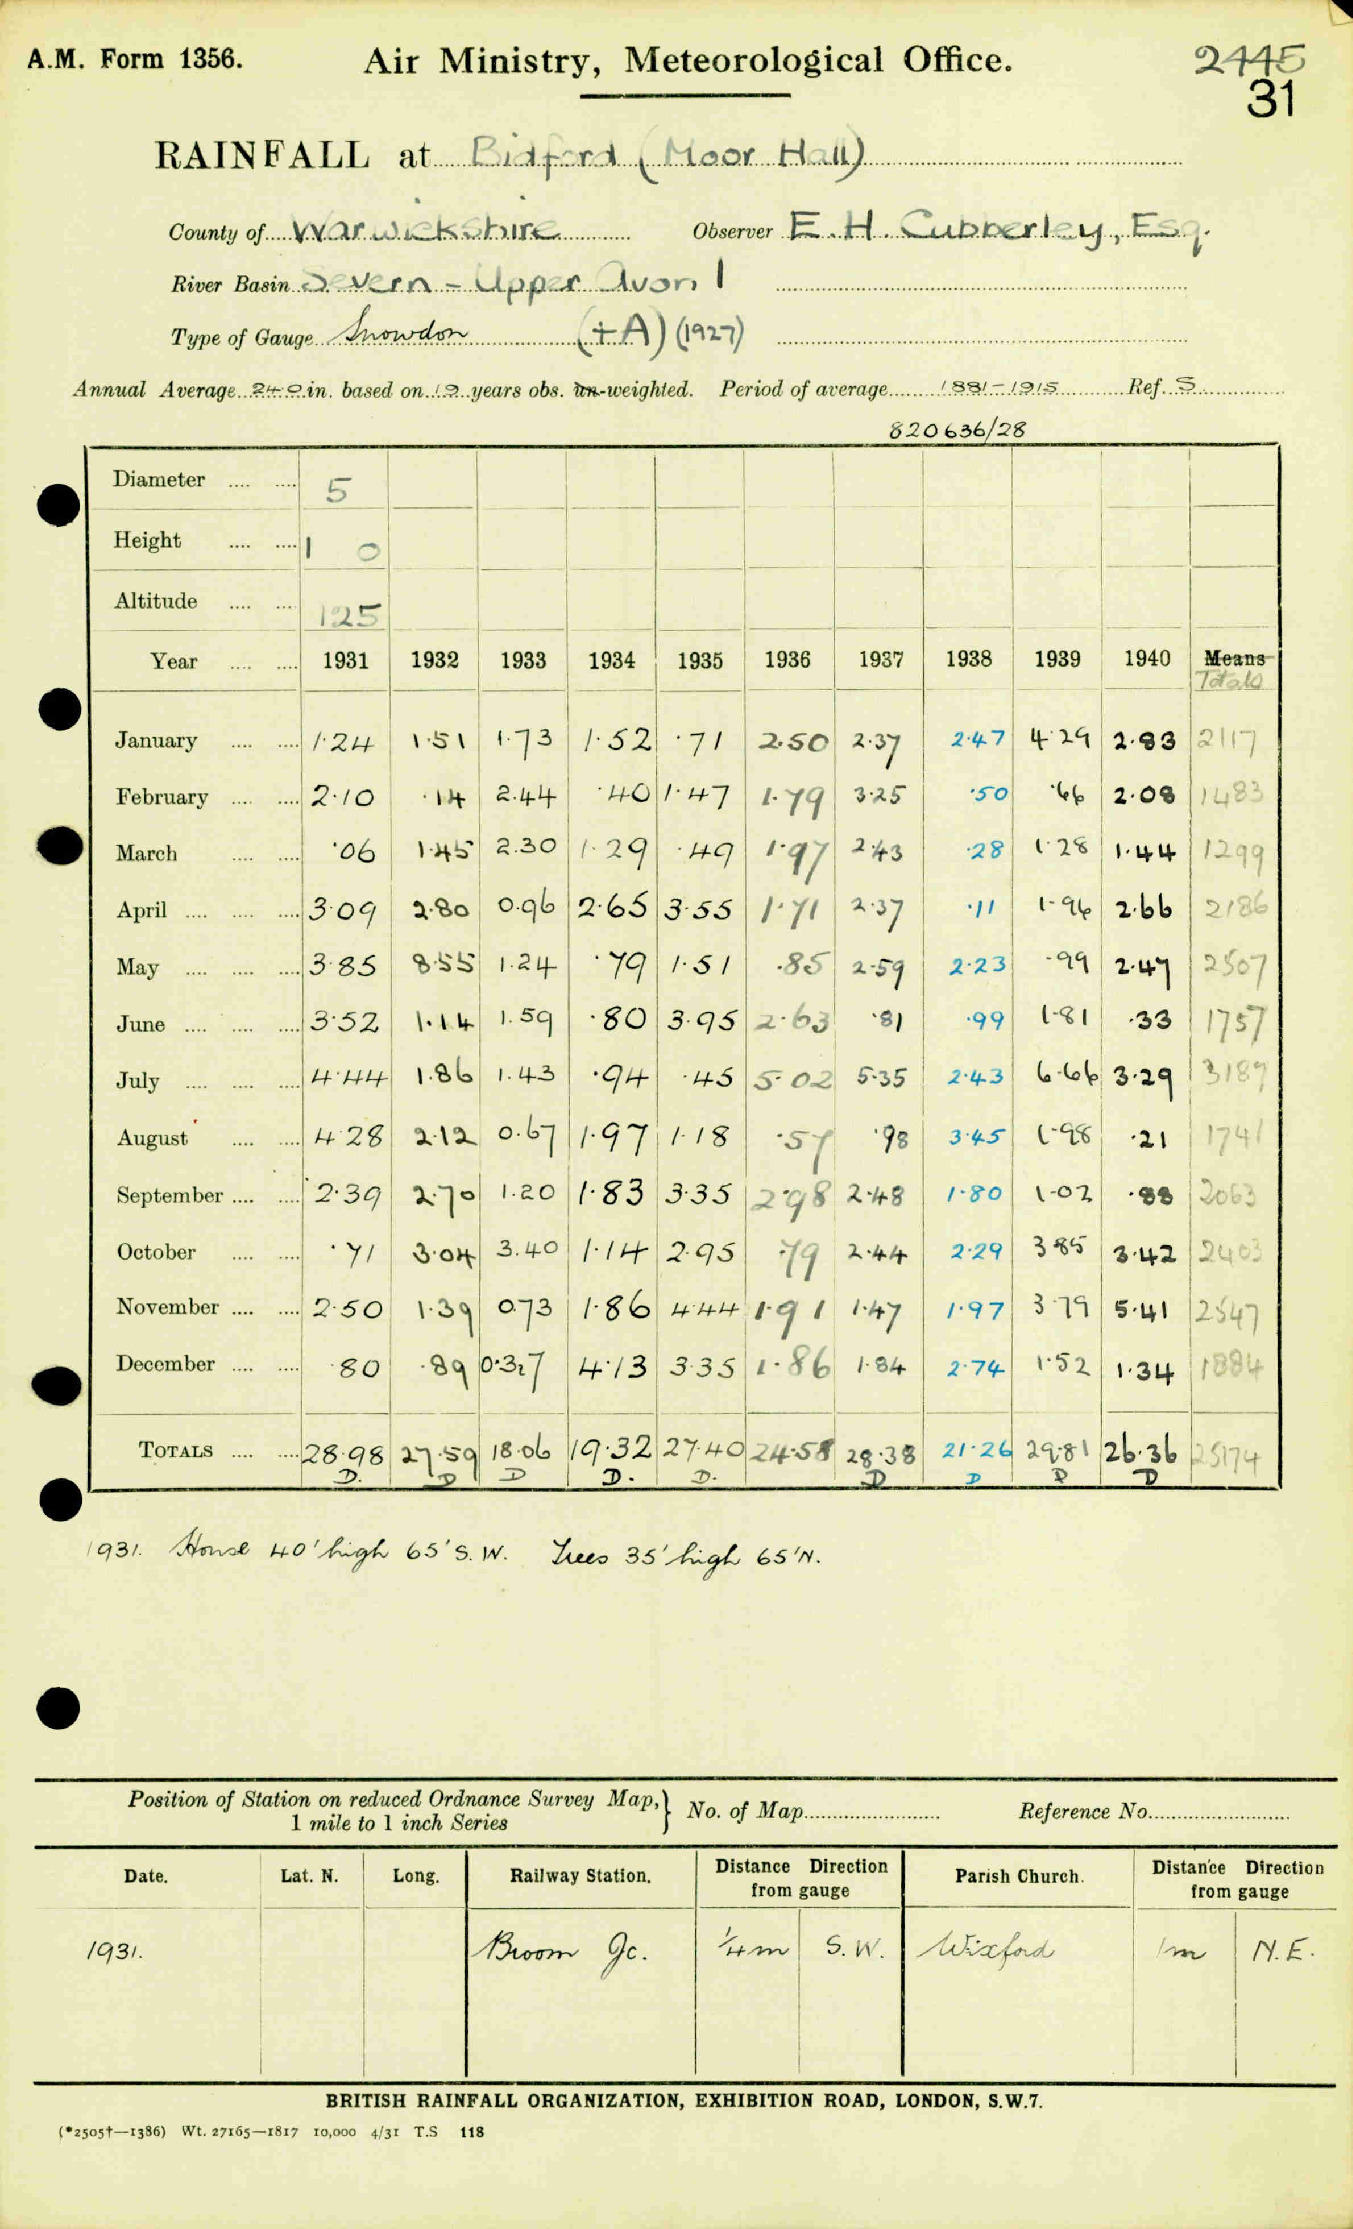 A.M. Form 1356.
Air Ministry, Meteorological Office.
2445
31
RAINFALL at Bidford (Moor Hall)
County of Warwickshire Observer E. H. Cubberley, Esq.
River Basin Severn - Upper Avon 1
Type of Gauge Snowdon (+A) (1927)
Annual Average 24·0 in. based on 19 years obs. un-weighted. Period of average 1881-1915 Ref. S
820636/28
Diameter .... .... 5
Height .... .... 1 0
Altitude .... .... 125
Year .... .... 1931 1932 1933 1934 1935 1936 1937 1938 1939 1940 Means
Totals
January .... .... 1·24 1·51 1·73 1·52 ·71 2·50 2·37 2·47 4·29 2·83 2117
February .... .... 2·10 ·14 2·44 ·40 1·47 1·79 3·25 ·50 ·66 2·08 1483
March .... .... ·06 1·45 2·30 1·29 ·49 1·97 2·43 ·28 1·28 1·44 1299
April .... .... .... 3·09 2·80 0·96 2·65 3·55 1·71 2·37 ·11 1·96 2·66 2186
May .... .... .... 3·85 8·55 1·24 ·79 1·51 ·85 2·59 2·23 ·99 2·47 2507
June .... .... .... 3·52 1·14 1·59 ·80 3·95 2·63 ·81 ·99 1·81 ·33 1757
July .... .... .... 4·44 1·86 1·43 ·94 ·45 5·02 5·35 2·43 6·66 3·29 3187
August .... .... 4·28 2·12 0·67 1·97 1·18 ·57 ·98 3·45 1·98 ·21 1741
September .... .... 2·39 2·70 1·20 1·83 3·35 2·98 2·48 1·80 1·02 ·88 2063
October .... .... ·71 3·04 3·40 1·14 2·95 ·79 2·44 2·29 3·85 3·42 2403
November .... .... 2·50 1·39 0·73 1·86 4·44 1·91 1·47 1·97 3·79 5·41 2547
December .... .... ·80 ·89 0·37 4·13 3·35 1·86 1·84 2·74 1·52 1·34 1884
TOTALS .... .... 28·98 27·59 18·06 19·32 27·40 24·58 28·38 21·26 29·81 26·36 25174
D. D D D. D. D D D D
1931. House 40' high 65' S.W. Trees 35' high 65' N.
Position of Station on reduced Ordnance Survey Map,} No. of Map Reference No.
1 mile to 1 inch Series
Date. Lat. N. Long. Railway Station. Distance Direction from gauge Parish Church. Distance Direction from gauge
1931. Broom Jc. 1/4 m S.W. Wixford 1m N.E.
BRITISH RAINFALL ORGANIZATION, EXHIBITION ROAD, LONDON, S.W.7.
(*2505†—1386) Wt. 27165—1817 10,000 4/31 T.S 118